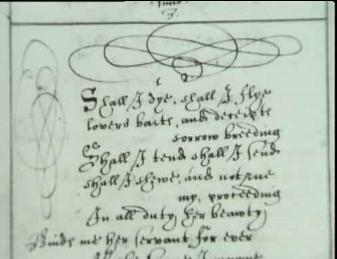 Shall I dye, shall I flye
lovers baits, and deceipts
sorrow breeding
Shall I tend shall I send
shall I shewe, and not rue
my proceeding
In all duty her beawty
Binds me her servant for ever